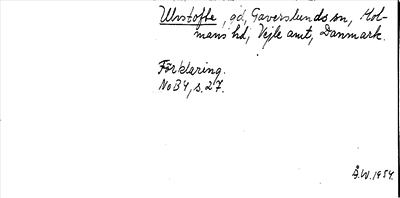 Ulvstofte, gd, Gaverslunds sn, Hol-
mans hd, Vejle amt, Danmark.
Förklaring.
NoB4, s. 27.
Å.W. 1954.